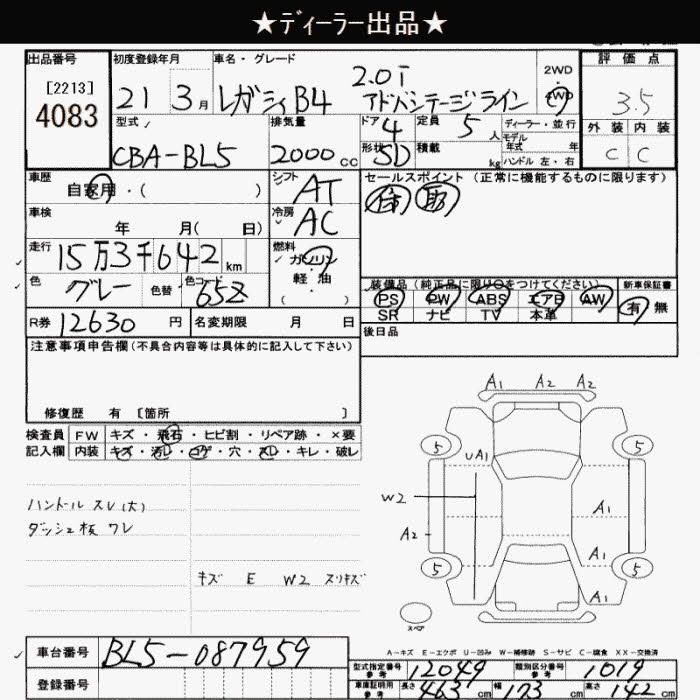 ★ディーラー出品★
出品番号
[2213]
4083
初度登録年月
21 3月
車名・グレード
レガシィB4 2.0i
アドバンテージライン
2WD
4WD
評価点
3.5
外装 内装
C C
型式
CBA-BL5
排気量
2000cc
ドア 4
形状 SD
定員 5人
積載 kg
ディーラー・並行
モデル年式 年
ハンドル 左・右
車歴
自家用・( )
シフト AT
セールスポイント (正常に機能するものに限ります)
車検
年 月( 日)
冷房 AC
走行
15万3千642km
燃料
ガソリン
・
軽油
( )
色
グレー
色替
色コード
65Z
装備品(純正品に限り○をつけてください)
新車保証書
PS PW ABS エアB AW
SR ナビ TV 本革
有 無
R券 12630円
名変期限 月 日
後日品
注意事項申告欄(不具合内容等は具体的に記入して下さい)
修復歴 有 [箇所 ]
検査員 記入欄
FW キズ・飛石・ヒビ割・リペア跡・×要
内装 キズ・汚レ・コゲ・穴・スレ・キレ・破レ
ハンドルスレ(大)
ダッシュ板ワレ
キズ E W2 スリキズ
A1 A2 A2
5 5
UA1
W2
A1
A2
A1
5 5
A1
スペア
A-キズ E-エクボ U-凹み W-補修跡 S-サビ C-腐食 XX-交換済
車台番号 BL5-087959
登録番号
型式指定番号 参考 12049
類別区分番号 参考 1019
車庫証明用 参考
長さ 463cm 幅 173cm 高さ 142cm